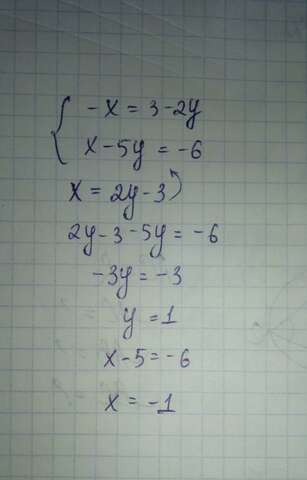 { -x = 3-2y
x-5y = -6
x = 2y-3
2y-3-5y = -6
-3y = -3
y = 1
x-5 = -6
x = -1